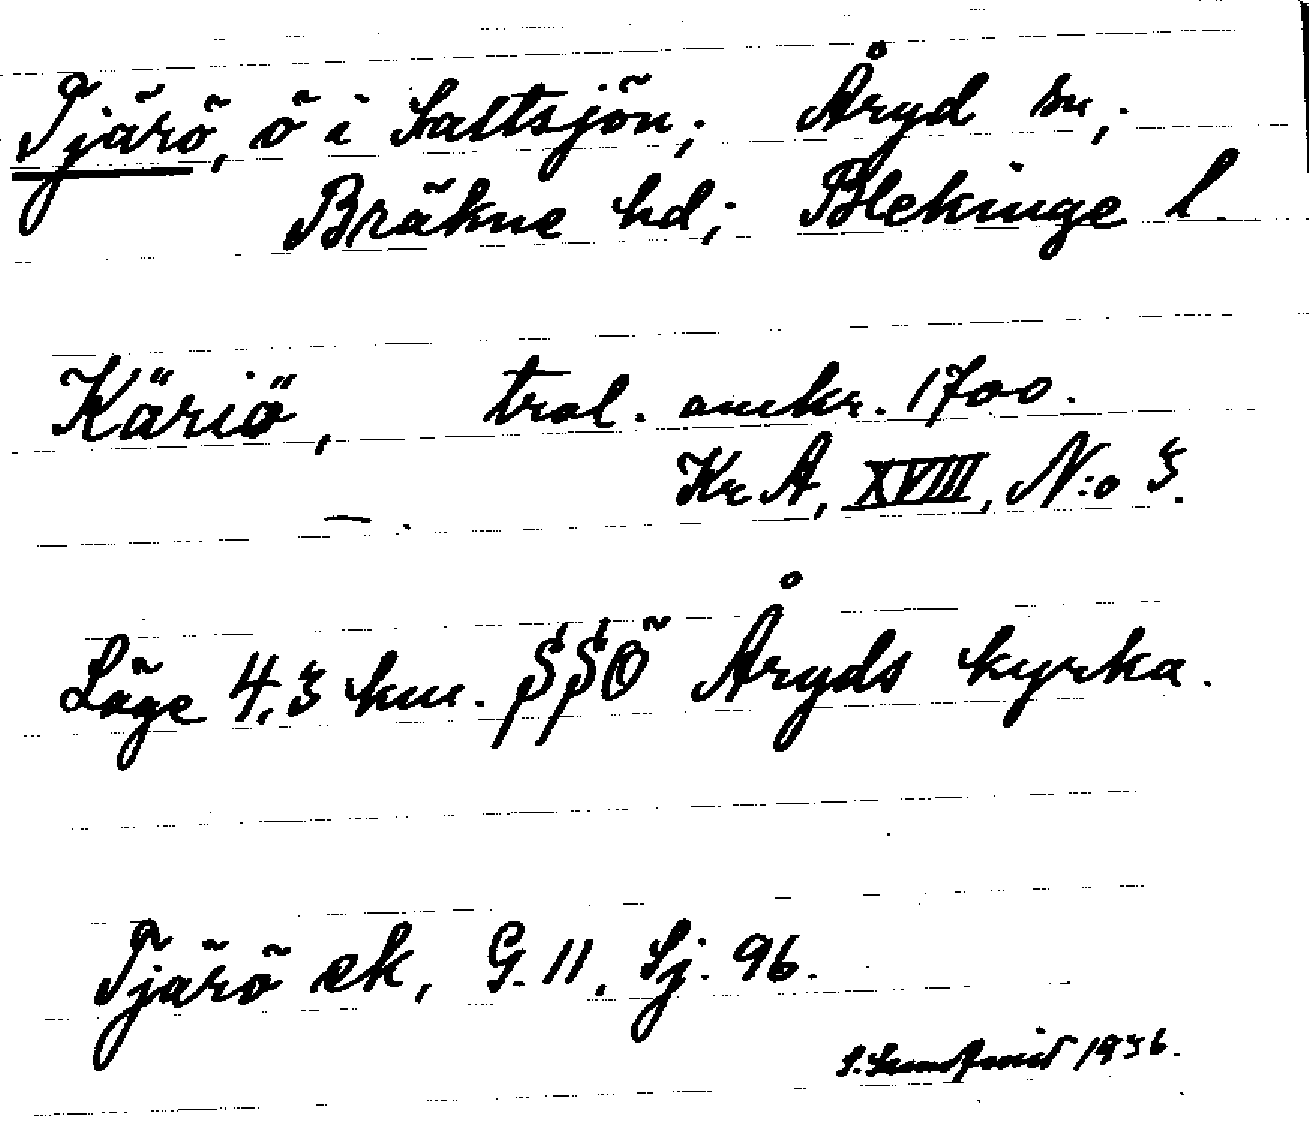 Tjärö, ö i Saltsjön; Åryd sn,;
Bräkne hd; Blekinge l.
Käriö, trol. omkr. 1700.
Kr A, XVIII, N:o 3.
—.
Läge 4,3 km. SSÖ Åryds kyrka.
Tjärö ek, G. 11. Sj. 96.
1936.